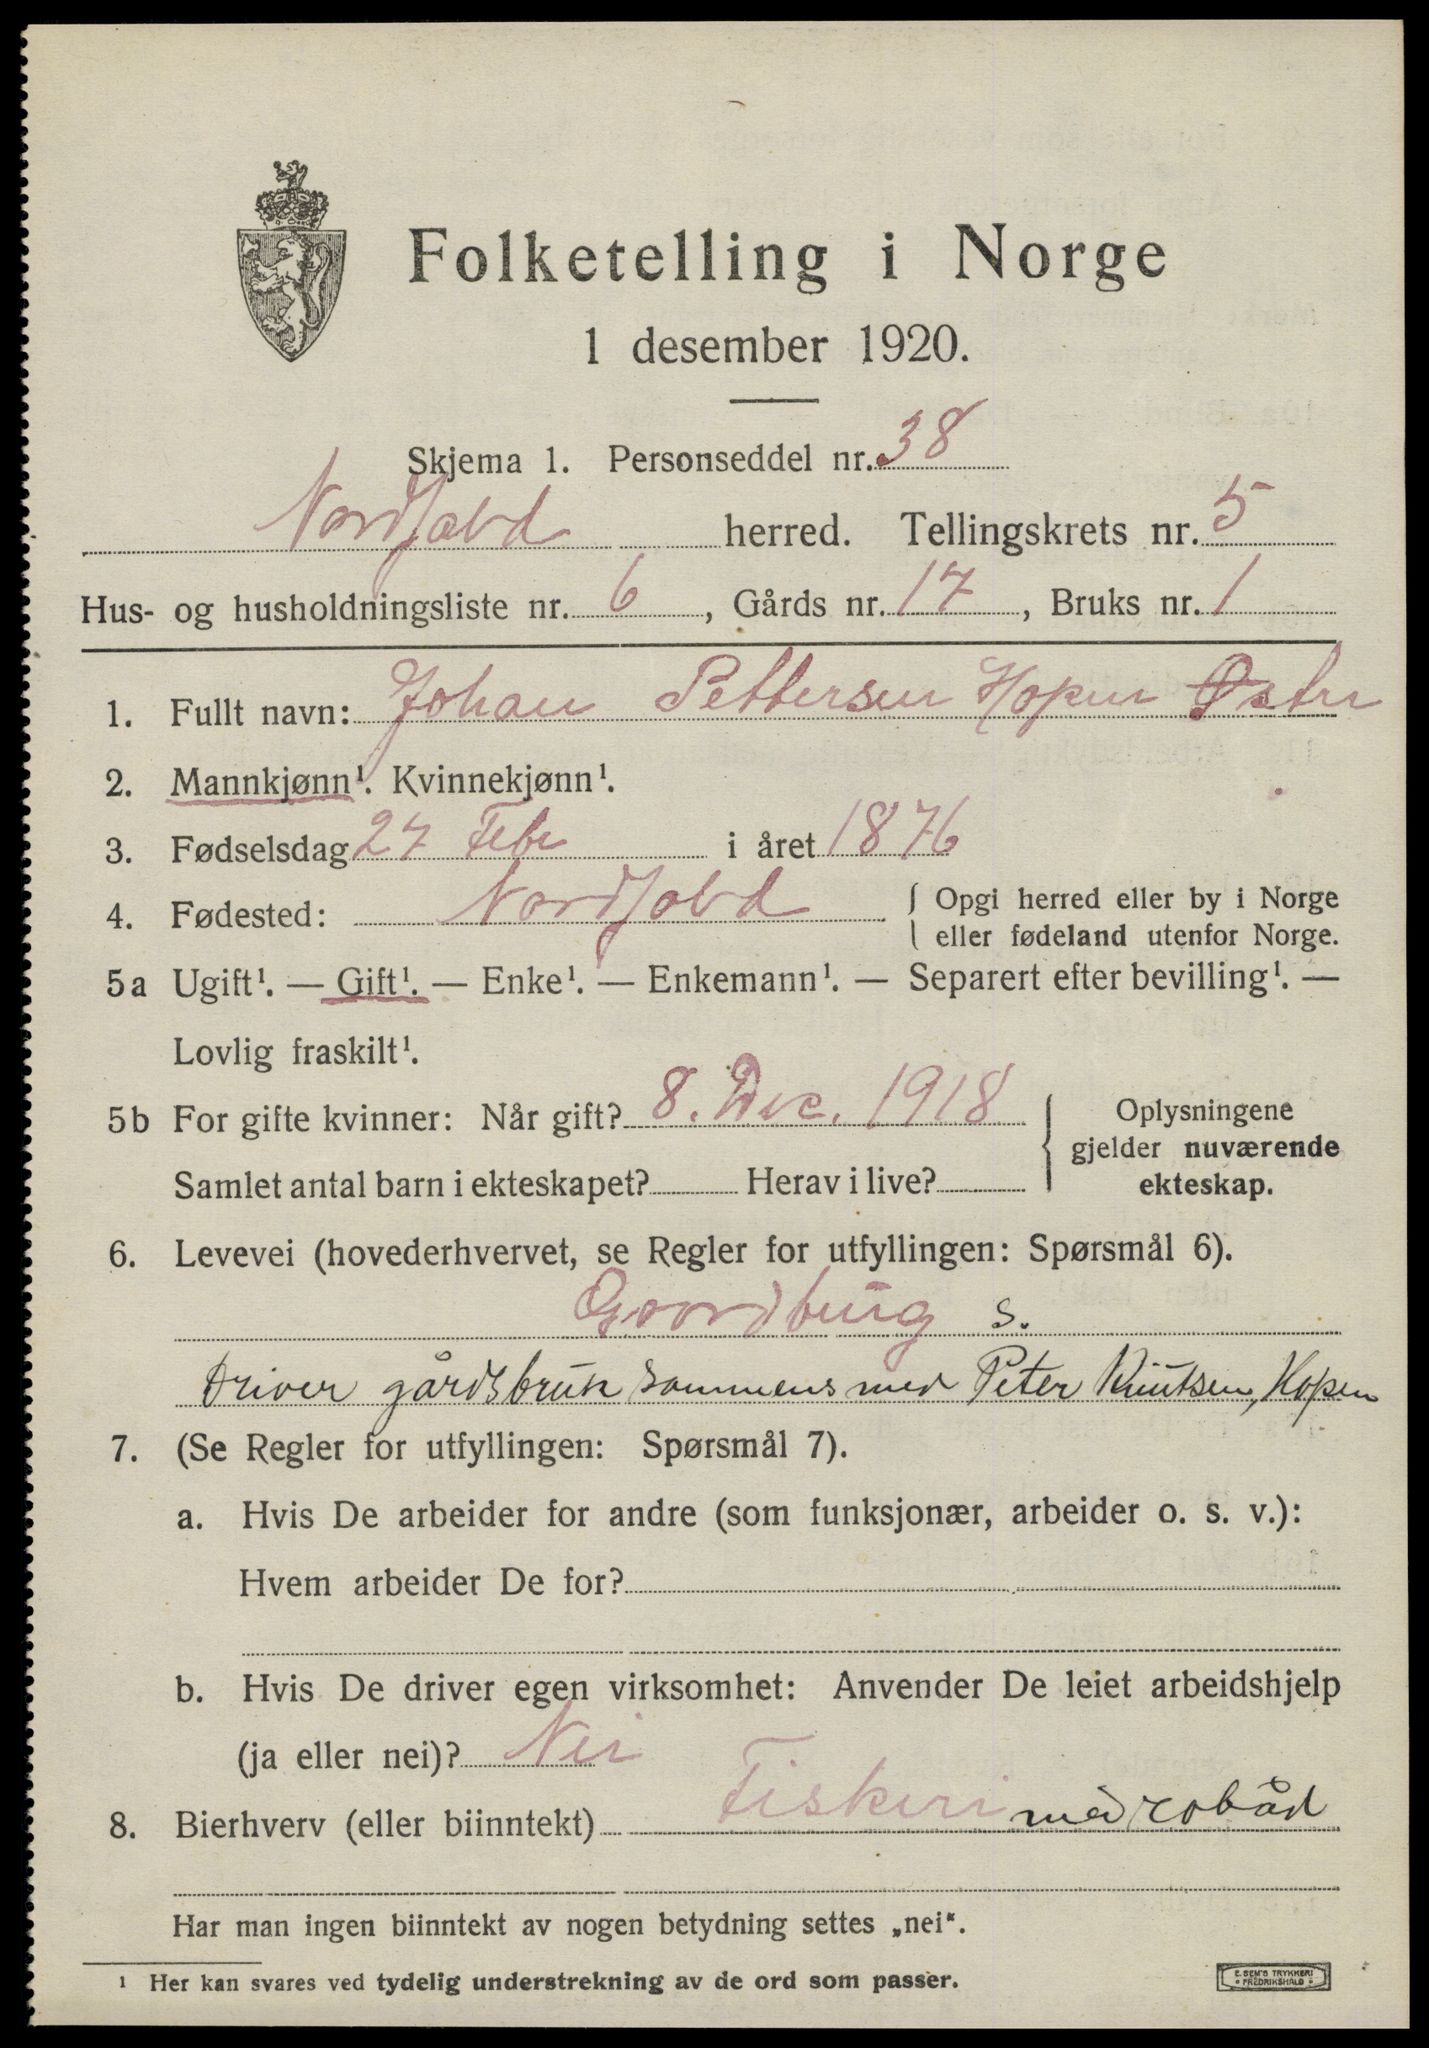 Folketelling i Norge
1 desember 1920.
Skjema 1. Personseddel nr. 38
Nordfold herred. Tellingskrets nr. 5
Hus- og husholdningsliste nr. 6, Gårds nr. 17, Bruks nr. 1
1. Fullt navn: Johan Pettersen Hopen Østre
2. Mannkjønn¹. Kvinnekjønn¹.
3. Fødselsdag 27 Febr i året 1876
4. Fødested: Nordfold { Opgi herred eller by i Norge
eller fødeland utenfor Norge.
5a Ugift¹. — Gift¹. — Enke¹. — Enkemann¹. — Separert efter bevilling¹. —
Lovlig fraskilt¹.
5b For gifte kvinner: Når gift? 8. Dec. 1918 { Oplysningene
gjelder nuværende
Samlet antal barn i ekteskapet? Herav i live? ekteskap.
6. Levevei (hovederhvervet, se Regler for utfyllingen: Spørsmål 6).
Goordbrug s.
Driver gårdsbruk sammens med Peter Knutsen, Hopen
7. (Se Regler for utfyllingen: Spørsmål 7).
a. Hvis De arbeider for andre (som funksjonær, arbeider o. s. v.):
Hvem arbeider De for?
b. Hvis De driver egen virksomhet: Anvender De leiet arbeidshjelp
(ja eller nei)? Nei
8. Bierhverv (eller biinntekt) Fiskeri med robåd
Har man ingen biinntekt av nogen betydning settes „nei“.
¹ Her kan svares ved tydelig understrekning av de ord som passer.
E. SEM'S TRYKKERI
FREDRIKSHALD